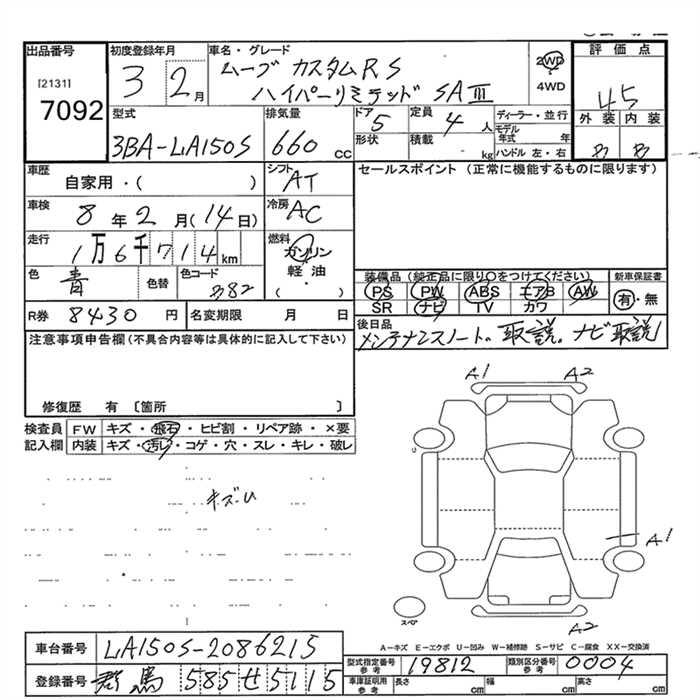 出品番号 初度登録年月 車名・グレード 評価点
[2131] 3 2月 ムーヴ カスタムRS 2WD
7092 ハイパーリミテッド SAⅢ 4WD 4.5
型式 排気量 ドア 5 定員 4人 ディーラー・並行 外装 内装
3BA-LA150S 660cc 形状 積載 kg モデル年式 年 B B
ハンドル 左・右
車歴 シフト セールスポイント(正常に機能するものに限ります)
自家用・( ) AT
車検 冷房
8年2月(14日) AC
走行 燃料
1万6千714km ガソリン
色 青 色替 色コード B82 軽油・( ) 装備品(純正品に限り○をつけてください) 新車保証書
PS PW ABS エアB AW 有・無
R券 8430円 名変期限 月 日 SR ナビ TV カワ
注意事項申告欄(不具合内容等は具体的に記入して下さい) 後日品
メンテナンスノート。取説。ナビ取説
修復歴 有 〔箇所 〕 A1 A2
検査員 FW キズ・飛石・ヒビ割・リペア跡・×要
記入欄 内装 キズ・汚レ・コゲ・穴・スレ・キレ・破レ
キズ・U
A1
スペア
A2
A-キズ E-エクボ U-凹み W-補修跡 S-サビ C-腐食 XX-交換済
車台番号 LA150S-2086215 型式指定番号 参考 19812 類別区分番号 参考 0004
登録番号 群馬 585 せ 5115 車庫証明用 参考 長さ cm 幅 cm 高さ cm